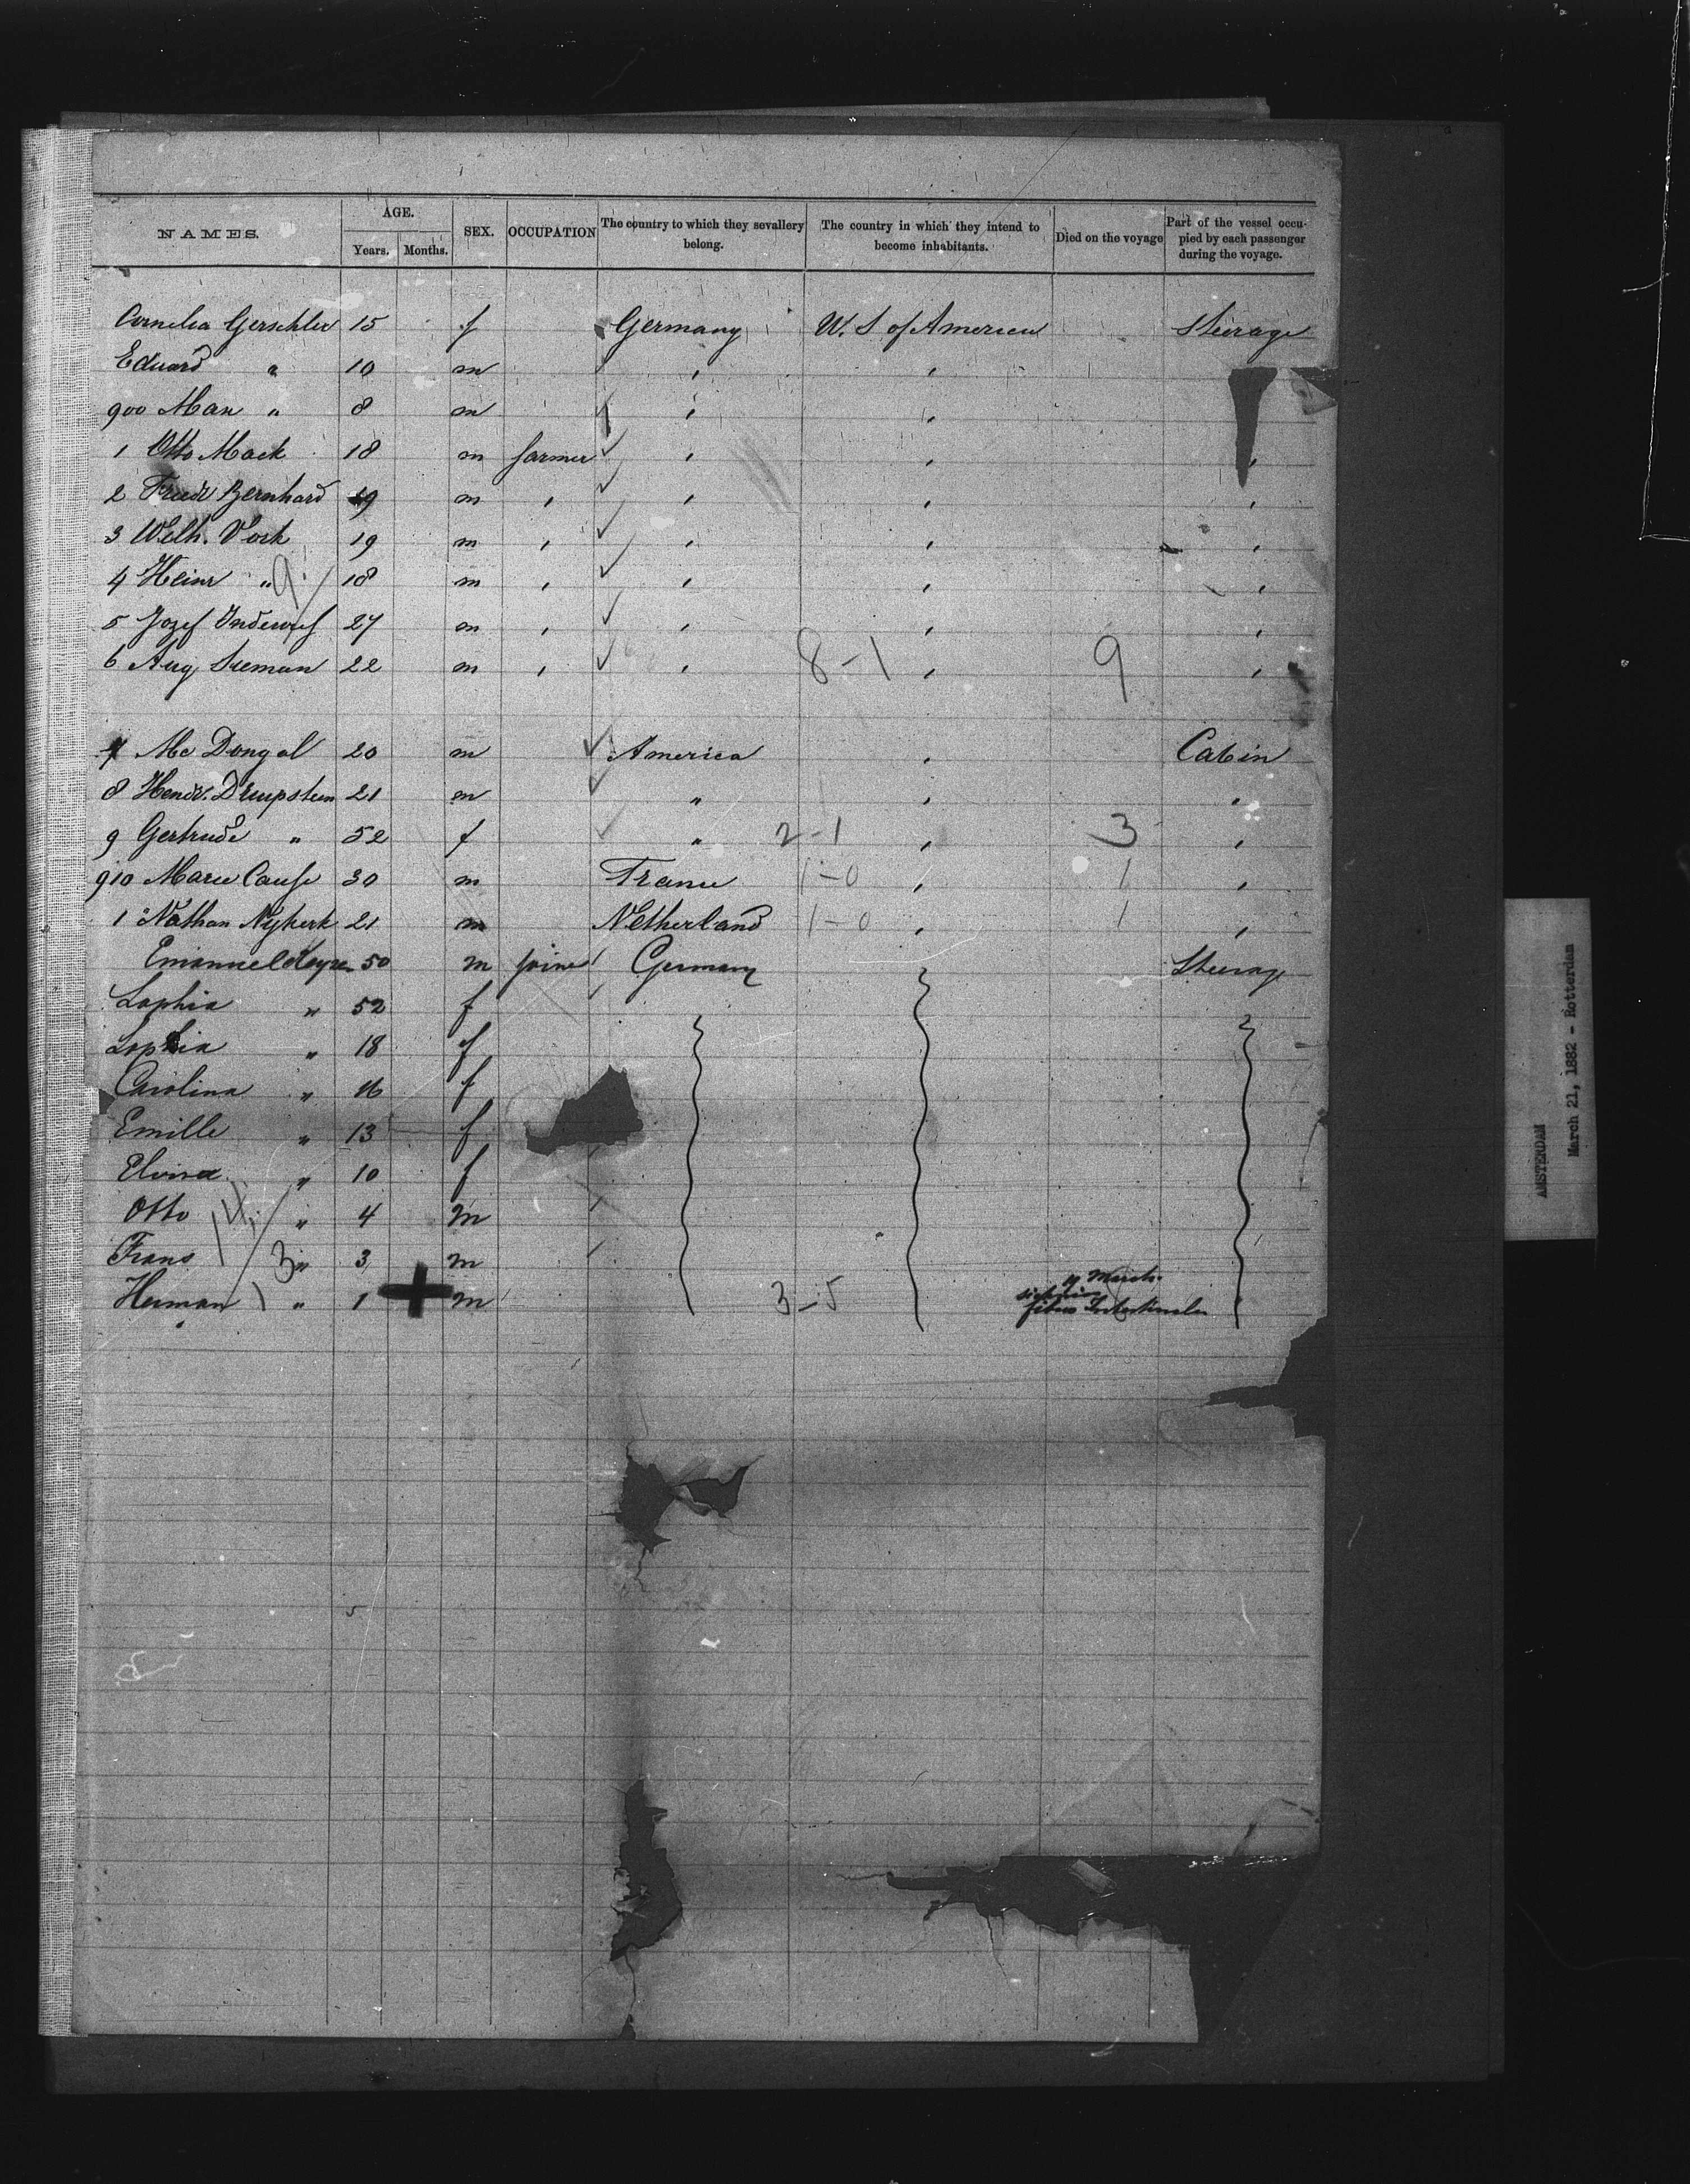 NAMES. AGE. SEX. OCCUPATION The country to which they sevallery belong. The country in which they intend to become inhabitants. Died on the voyage Part of the vessel occupied by each passenger during the voyage.
Years. Months.
Cornelia Gerschler 15 f Germany U. S of America Steerage
Eduard " 10 m
900 Man " 8 m
1 Otto Mack 18 m farmer
2 Friedr Bernhard 19 m
3 Welh. Vork 19 m
4 Heinr " 18 m
5 Jozef 27 m
6 Aug 22 m 8-1 9
7 Mc Dongal 20 m America Cabin
8 Hendr. 21 m "
9 Gertrude " 52 f " 2-1 3
910 Marie 30 m France 1-0 1
1 Nathan Nykerk 21 m Netherland 1-0 1
Emanuel 50 m joiner Germany Steerage
Sophia " 52 f
Sophia " 18 f
Carolina " 16 f
Emille " 13 f
Elvira " 10 f
Otto " 4 m
Frans " 3 m
Herman " 1 m 3-5 March
AMSTERDAM
March 21, 1882 - Rotterdam